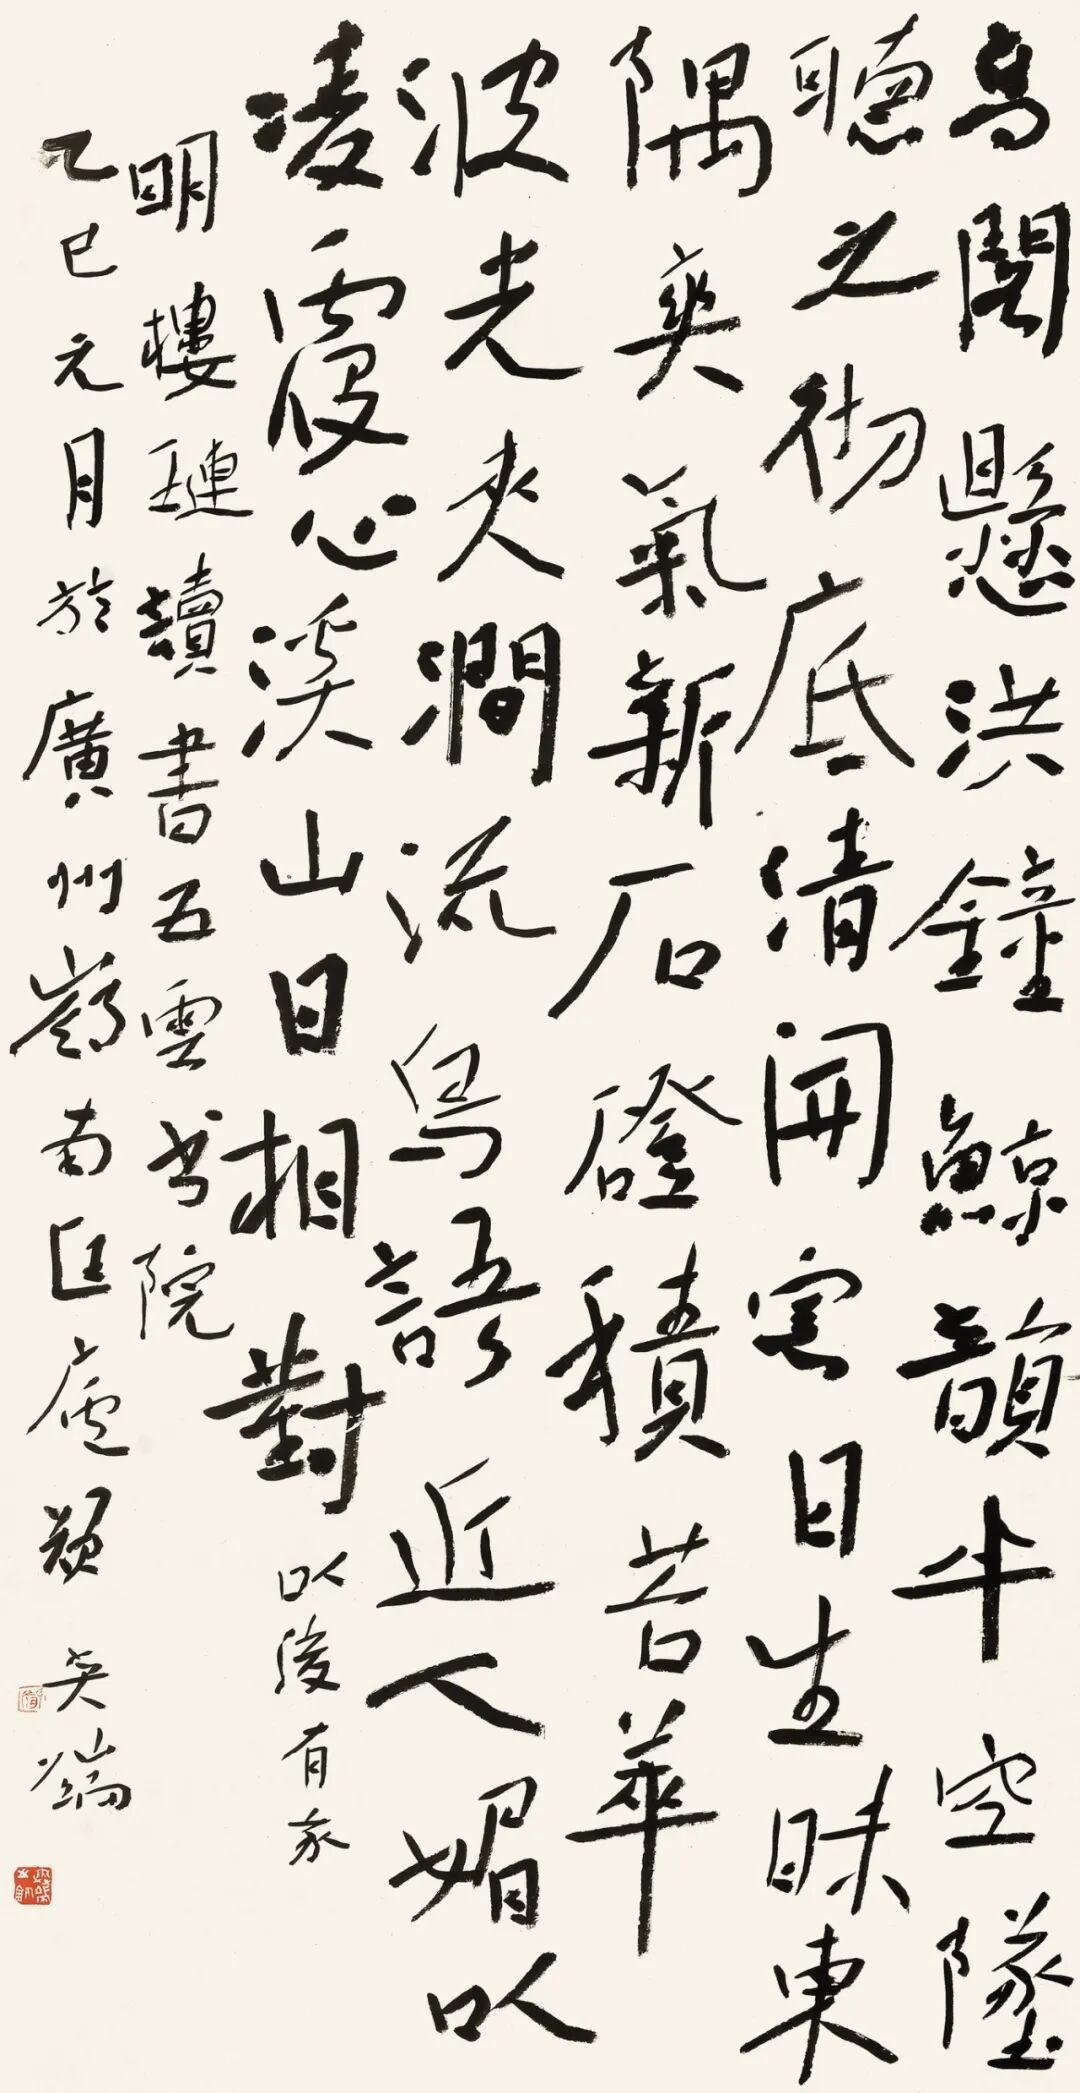 高閣懸洪鐘鯨韻半空墜
聽之彻底清開窓日生昧東
隅爽氣新石磴積苔華
波光夾澗流鳥語近人媚以
凌霞心溪山日相對 以後有我
明樓璉讀書五雲书院
乙巳元月於廣州嶺南匡廬顏奕端